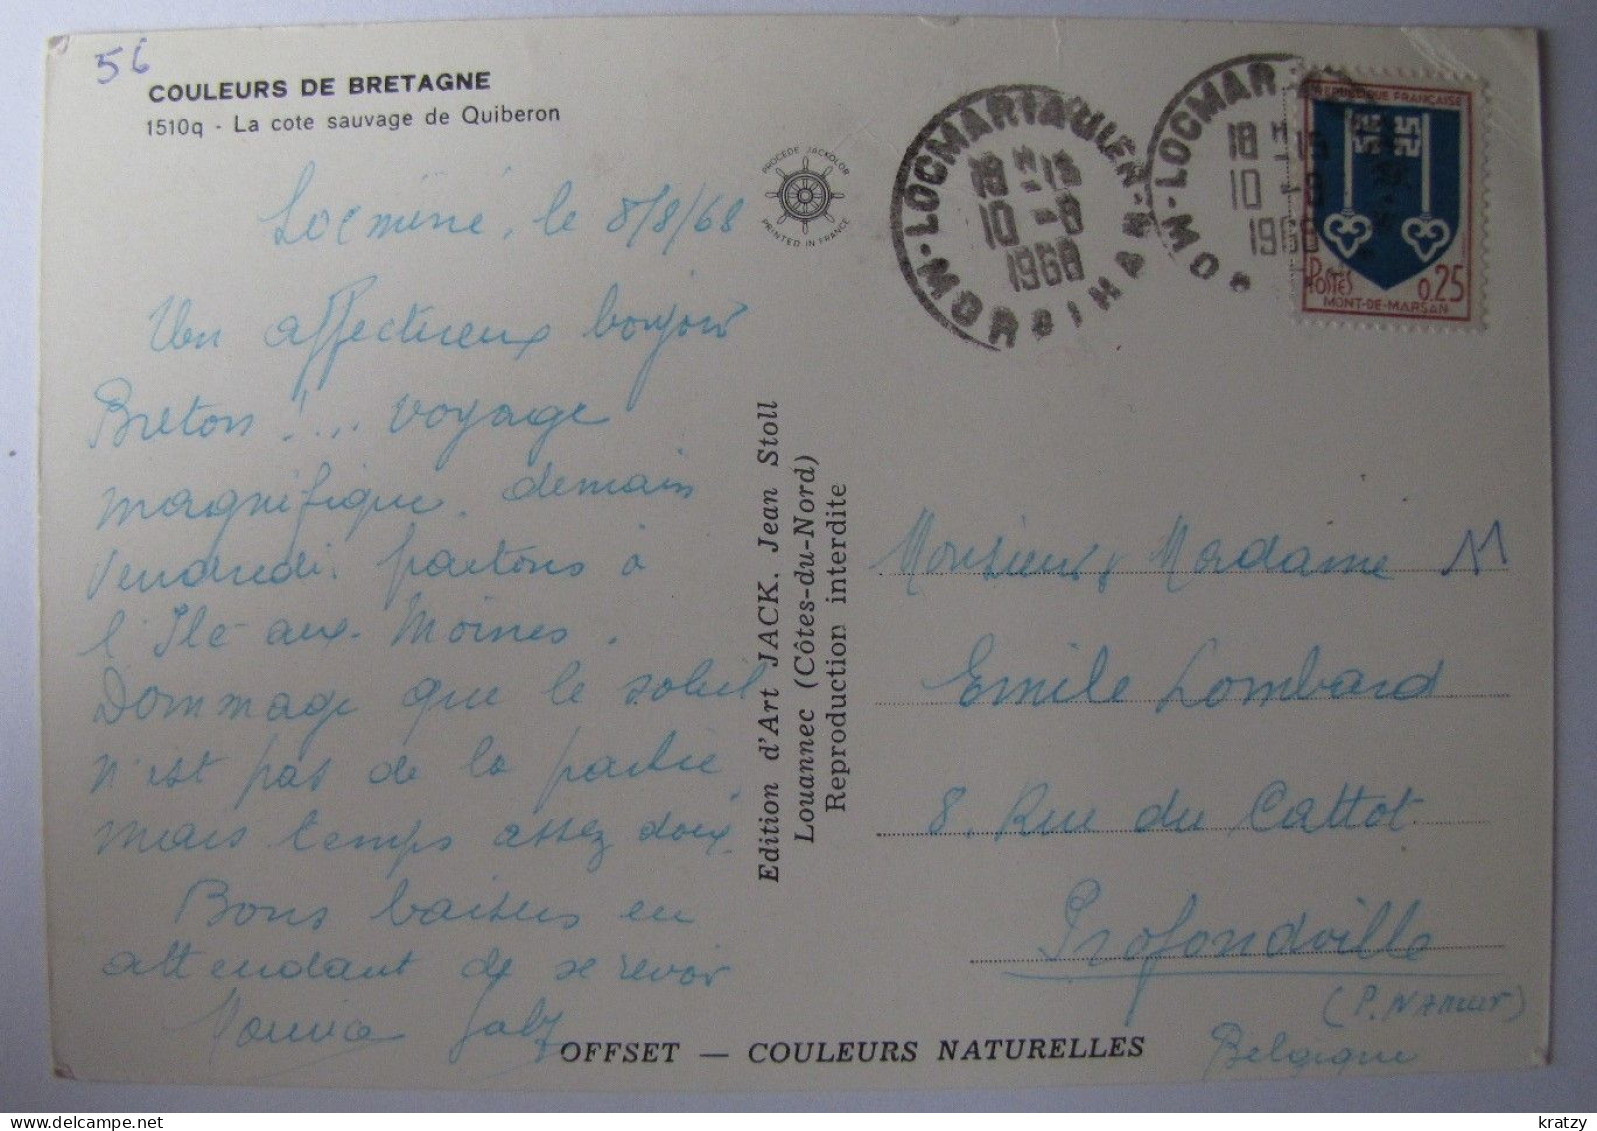 56
COULEURS DE BRETAGNE
1510q - La cote sauvage de Quiberon
Locminé, le 8/8/68
Un affectueux bonjour
Breton !... voyage
magnifique. demain
Vendredi. partons à
l'Ile-aux-Moines.
Dommage que le soleil
n'est pas de la partie
mais temps assez doux.
Bons baisers en
attendant de se revoir
PROCEDE JACKOLOR
PRINTED IN FRANCE
Edition d'Art JACK. Jean Stoll
Louannec (Côtes-du-Nord)
Reproduction interdite
LOCMARIAQUER - MORBIHAN
18 H - 15
10 - 8
1968
LOCMAR
MO
18 H - 15
10 - 8
1968
REPUBLIQUE FRANÇAISE
POSTES
0,25
MONT-DE-MARSAN
Monsieur & Madame M
Emile Lombard
8, Rue du Cattot
Profondville
(P. NAMUR)
Belgique
OFFSET — COULEURS NATURELLES
kratzy